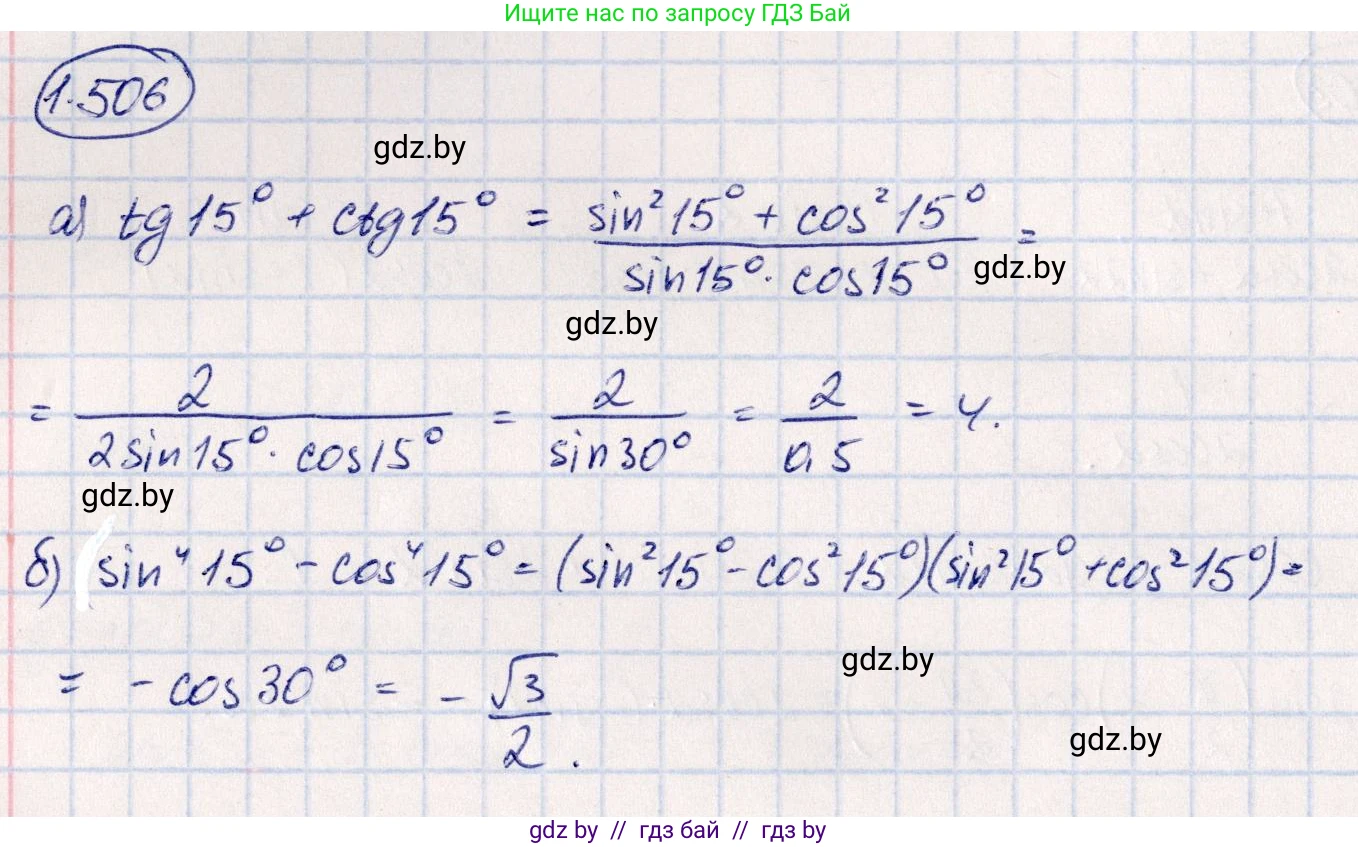 Ищите нас по запросу ГДЗ Бай
1.506
gdz.by
а) tg15° + ctg15° = (sin²15° + cos²15°)/(sin15° · cos15°) =
gdz.by
gdz.by
= 2/(2sin15° · cos15°) = 2/sin30° = 2/0,5 = 4.
gdz.by
б) sin⁴15° - cos⁴15° = (sin²15° - cos²15°)(sin²15° + cos²15°) =
gdz.by
= - cos30° = - √3/2.
gdz.by
gdz by // гдз бай // гдз by